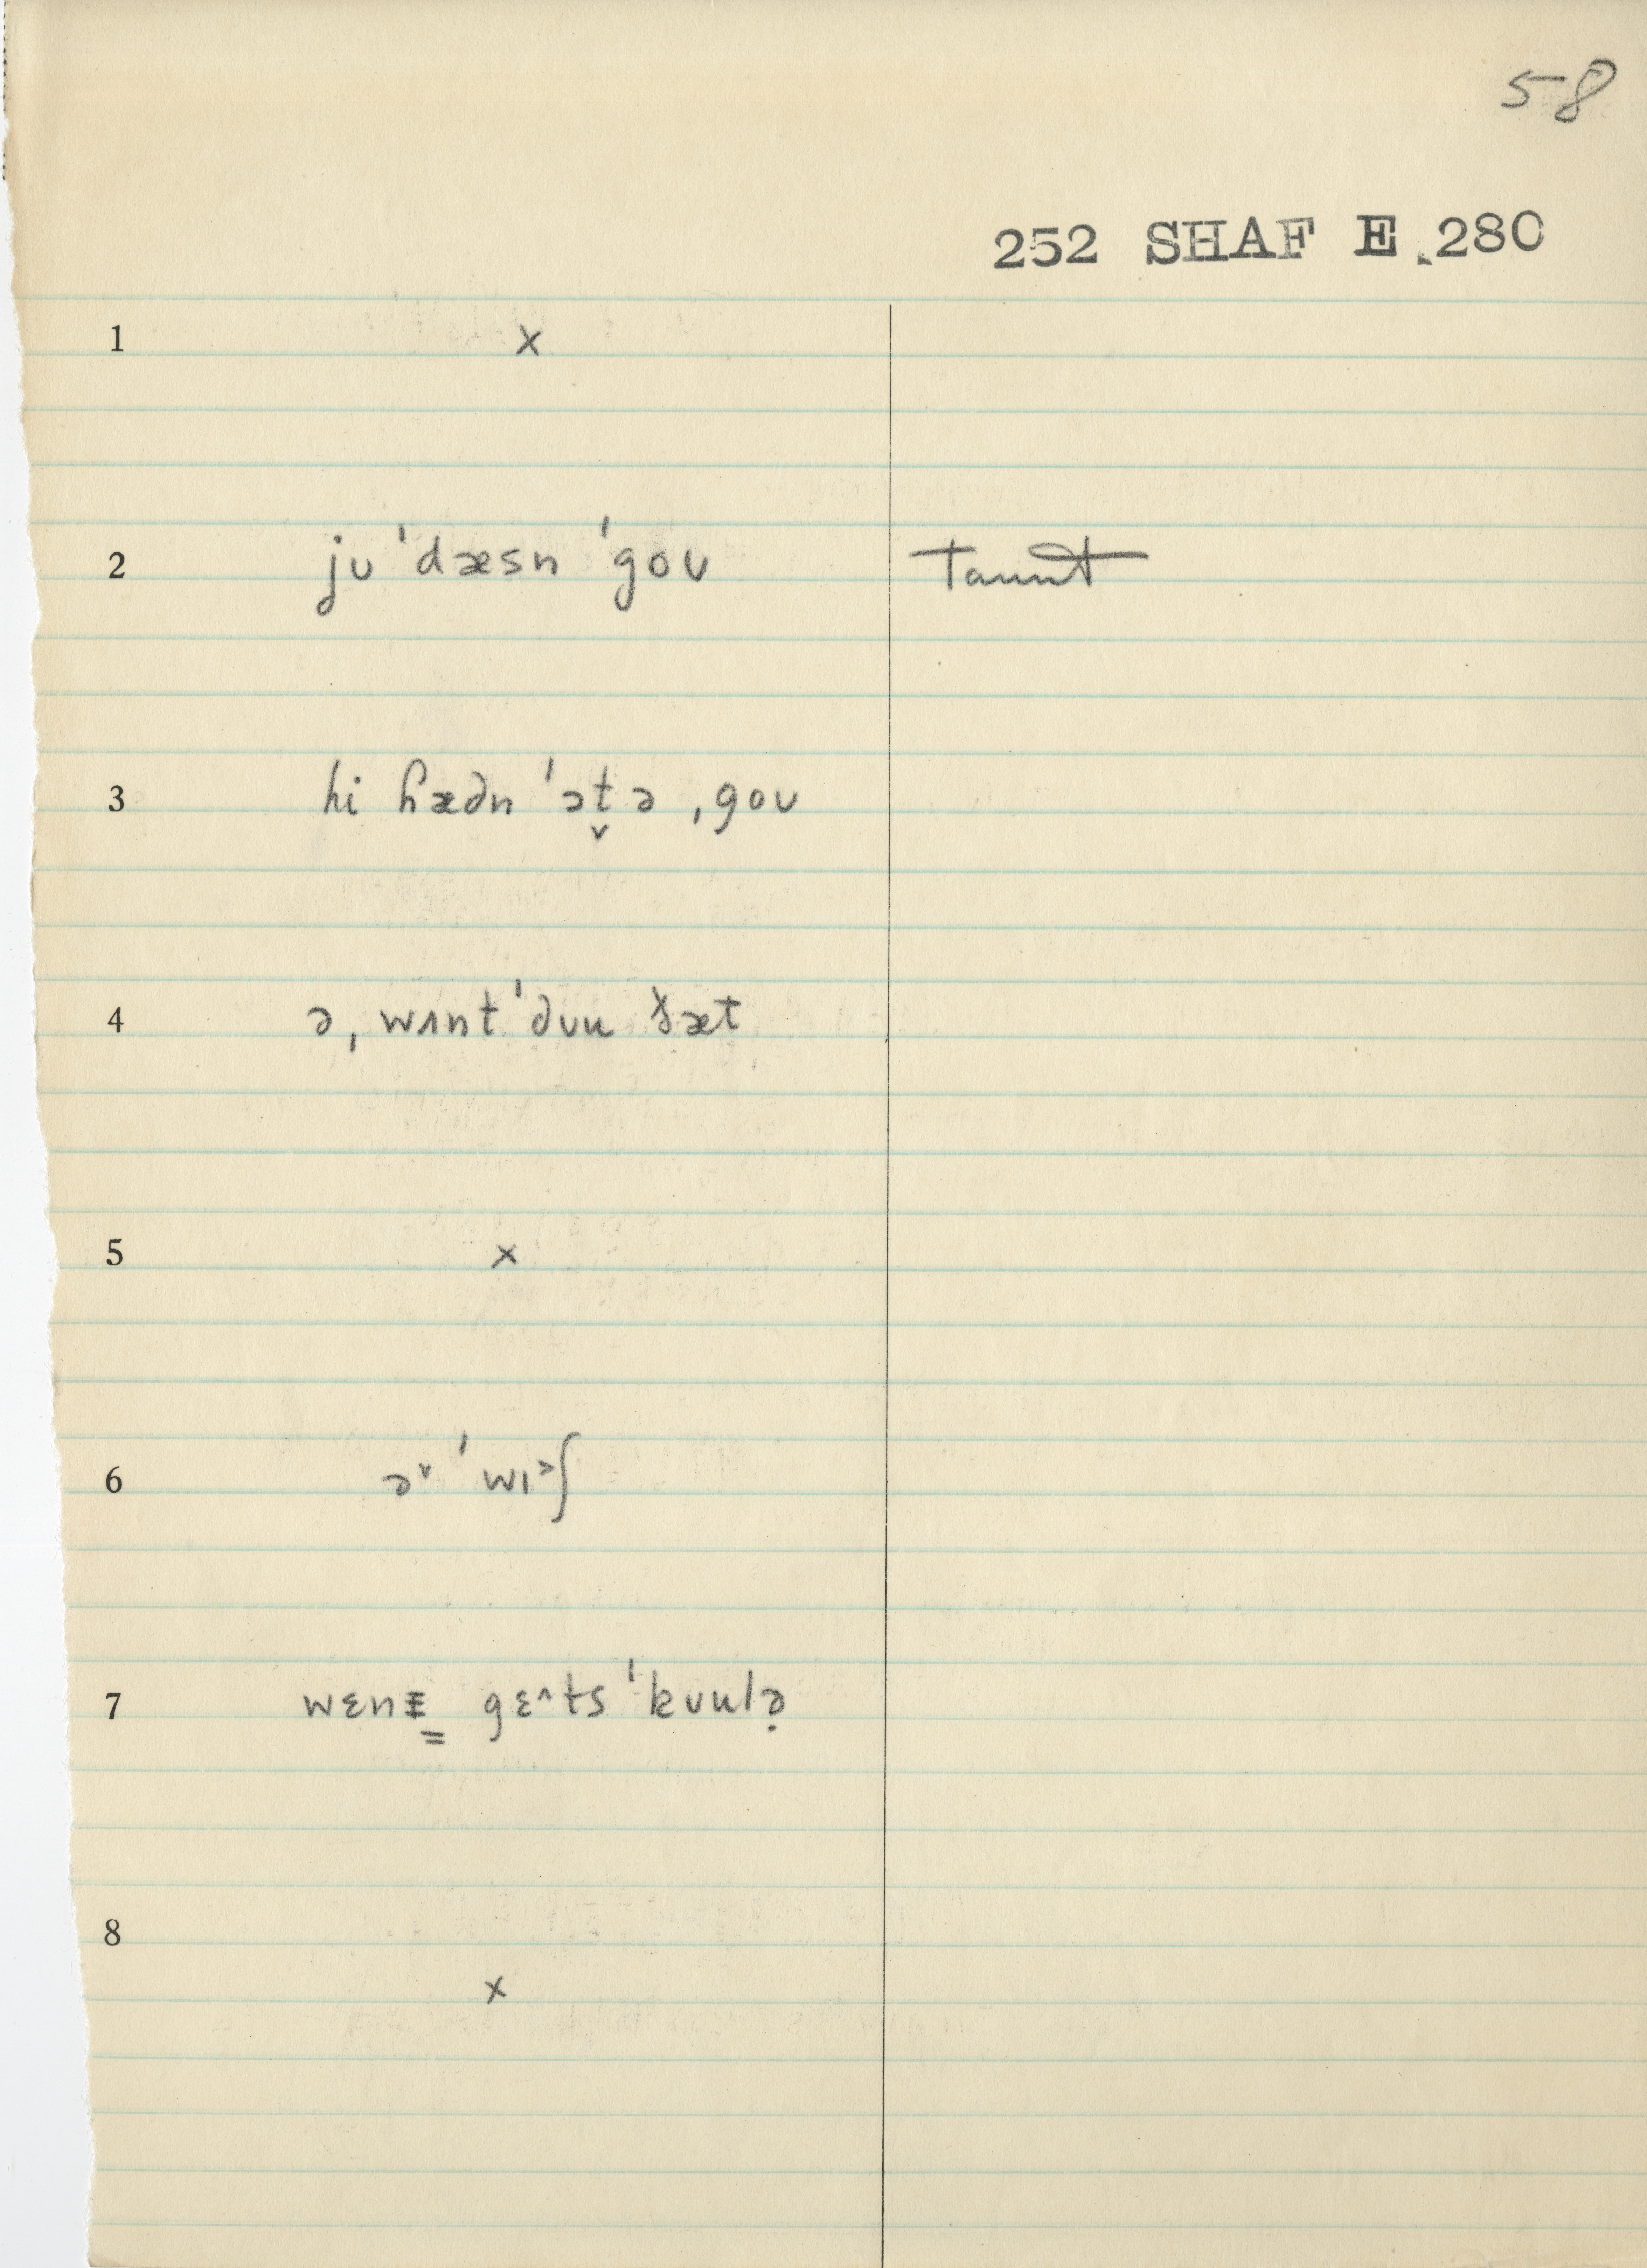 58
252 SHAF E 280
1 x
2 jʊ ˈdæsn ˈgoʊ Taunt
3 hi ɦædn ˈɔt̬ə ˌgoʊ
4 ə ˌwʌnt ˈdʊu ðæt
5 x
6 ə˅ ˈwɪ˃ʃ
7 wɛnᵻ̳ gɛ^ts ˈkʊulə̣
8 x